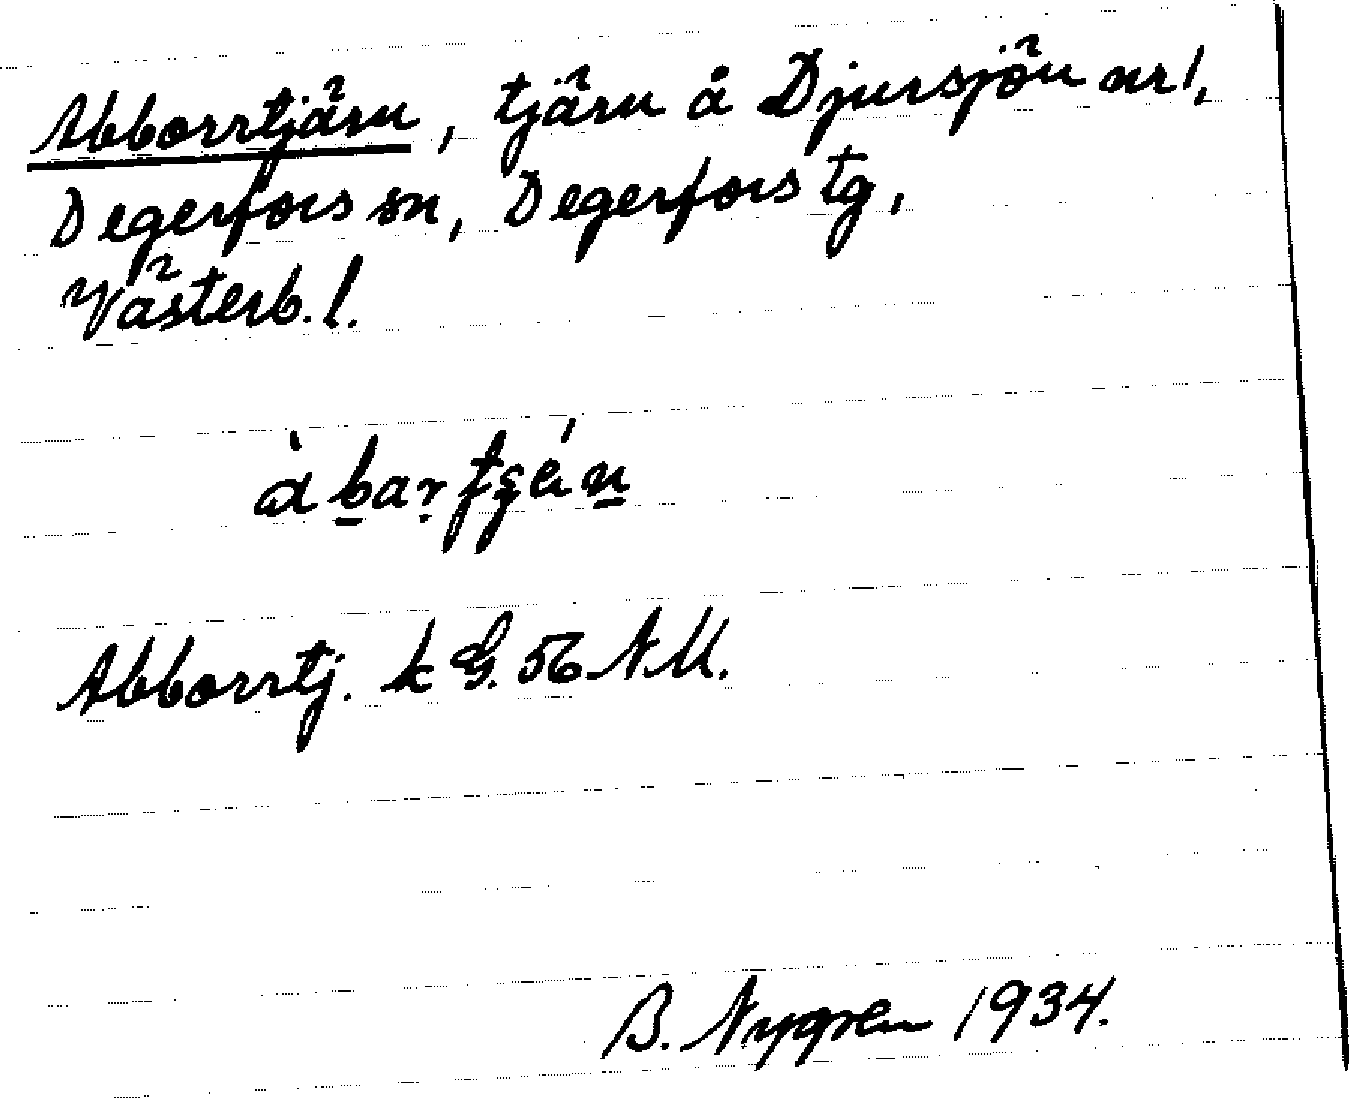 Abborrtjärn, tjärn å Djursjön nr 1,
Degerfors sn, Degerfors tg,
Västerb. l.
Abborrtj. k G. 56 NU.
B. Nygren 1934.